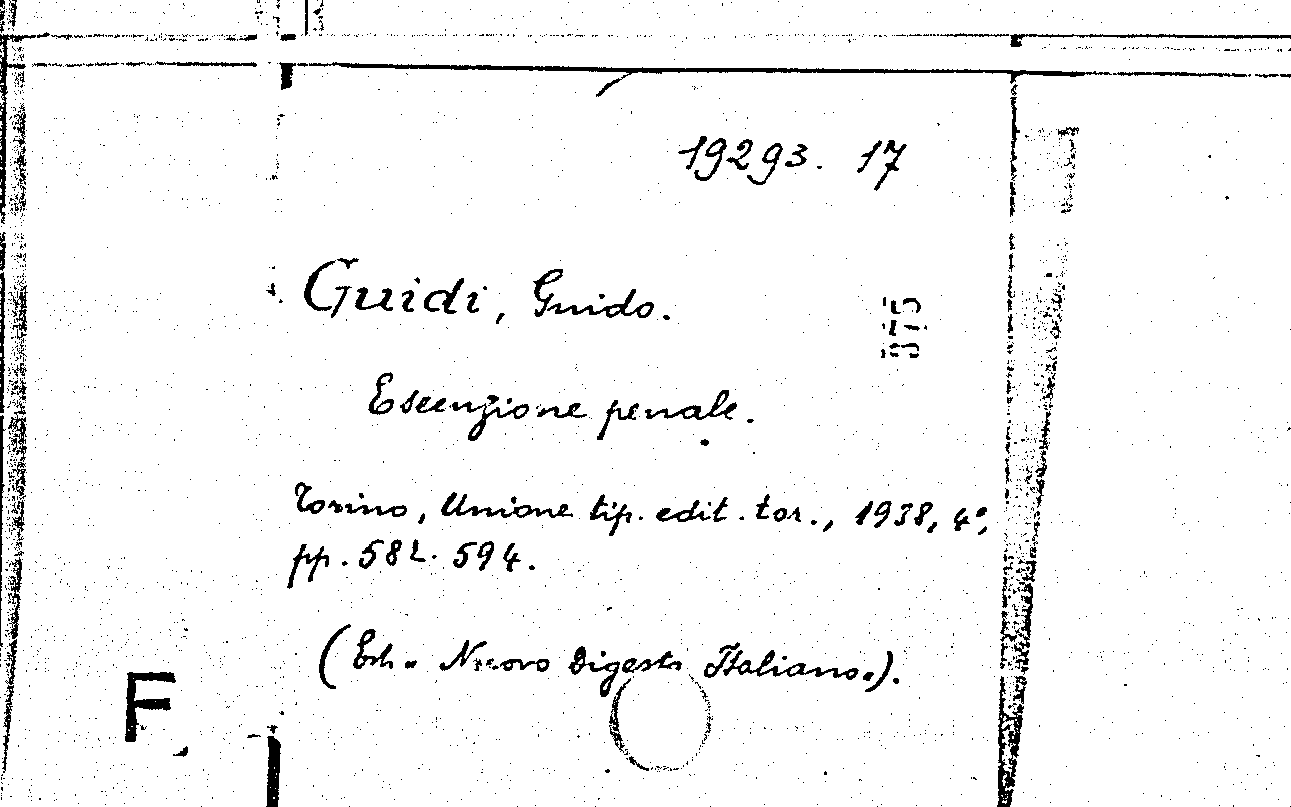 19293. 17
Guidi, Guido.
375
Esecuzione penale.
Torino, Unione tip. edit. tor., 1938, 4°,
pp. 582. 594.
(Estr. " Nuovo Digesto Italiano").
F